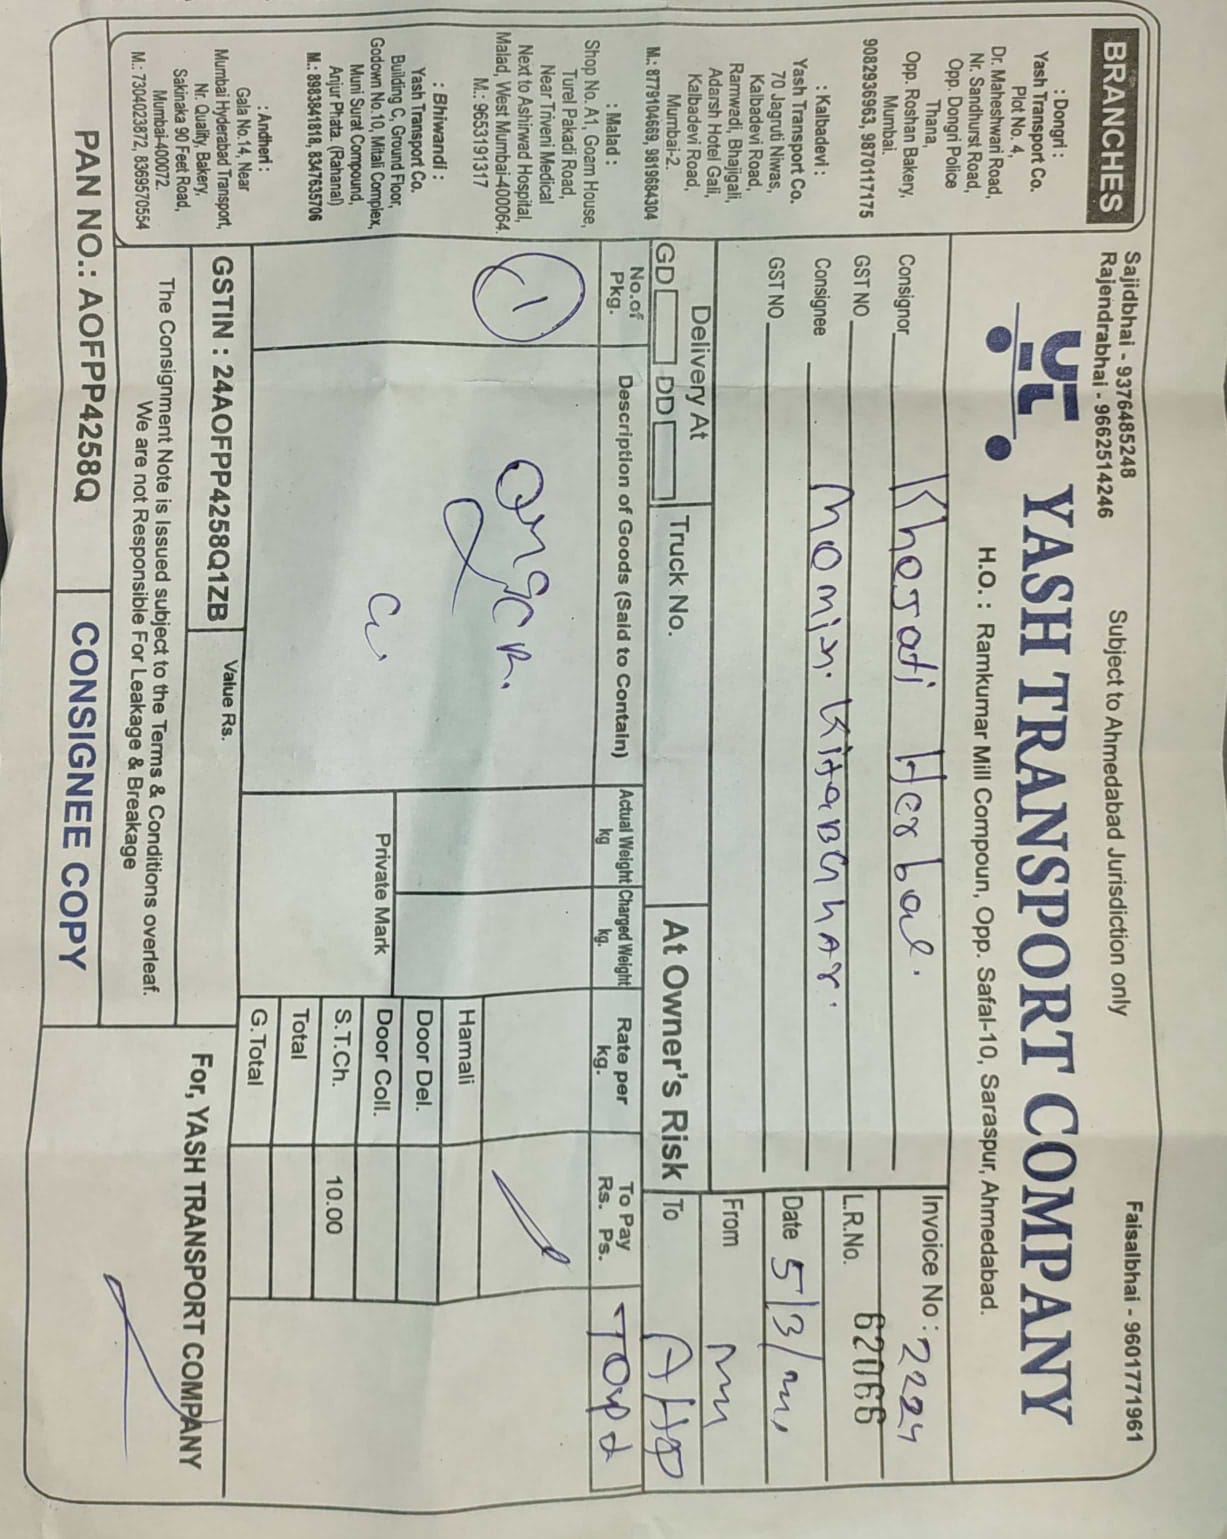 BRANCHES
: Dongri :
Yash Transport Co.
Plot No. 4,
Dr. Maheshwari Road,
Nr. Sandhurst Road,
Opp. Dongri Police
Thana,
Opp. Roshan Bakery,
Mumbai.
9082936963, 9870117175
: Kalbadevi :
Yash Transport Co.
70 Jagruti Niwas,
Kalbadevi Road,
Ramwadi, Bhajigali,
Adarsh Hotel Gali,
Kalbadevi Road,
Mumbai-2.
M.: 8779104669, 9819684304
: Malad :
Shop No. A1, Goam House,
Turel Pakadi Road,
Near Triveni Medical
Next to Ashirwad Hospital,
Malad, West Mumbai-400064.
M.: 9653191317
: Bhiwandi :
Yash Transport Co.
Building C, Ground Floor,
Godown No.10, Mitali Complex,
Muni Surat Compound,
Anjur Phata. (Rahanal)
M.: 8983841818, 8347635706
: Andheri :
Gala No.14, Near
Mumbai Hyderabad Transport,
Nr. Quality, Bakery,
Sakinaka 90 Feet Road,
Mumbai-400072.
M.: 7304023872, 8369570554
Sajidbhai - 9376485248
Rajendrabhai - 9662514246
Subject to Ahmedabad Jurisdiction only
Faisalbhai - 9601771961
YASH TRANSPORT COMPANY
H.O. : Ramkumar Mill Compoun, Opp. Safal-10, Saraspur, Ahmedabad.
Consignor Khojati Herbal.
GST NO
Consignee Momin. KitaBGhar.
GST NO
Invoice No : 2224
L.R.No. 62066
Date 5/3/
From
To AHD
Delivery At
GD DD
Truck No.
At Owner's Risk
No.of Pkg.
Description of Goods (Said to Contain)
Actual Weight kg
Charged Weight kg.
Rate per kg.
To Pay Rs. Ps.
1
Private Mark
Hamali
Door Del.
Door Coll.
S.T.Ch. 10.00
Total
G.Total
GSTIN : 24AOFPP4258Q1ZB
Value Rs.
The Consignment Note is Issued subject to the Terms & Conditions overleaf.
We are not Responsible For Leakage & Breakage
For, YASH TRANSPORT COMPANY
PAN NO.: AOFPP4258Q
CONSIGNEE COPY